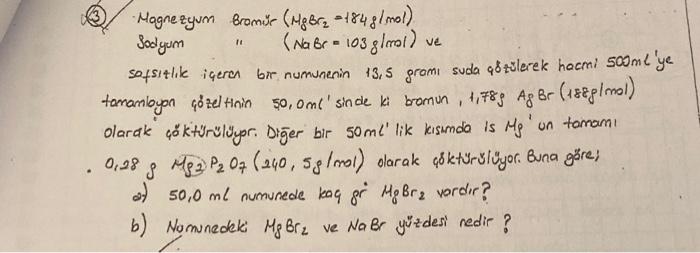 ③ Magnezyum Bromür (MgBr₂ = 184 g/mol)
Sodyum " (NaBr = 103 g/mol) ve
safsızlık içeren bir numunenin 13,5 gramı suda çözülerek hacmi 500ml'ye
tamamlayan çözeltinin 50,0ml'sinde ki bromun, 1,78g AgBr (188g/mol)
olarak çöktürülüyor. Diğer bir 50ml'lik kısımda is Mg'un tamamı
. 0,28 g Mg2 P2 O7 (240,5g/mol) olarak çöktürülüyor. Buna göre;
a) 50,0 ml numunede kaç gr MgBr2 vardır?
b) Numunedeki MgBr2 ve NaBr yüzdesi nedir?